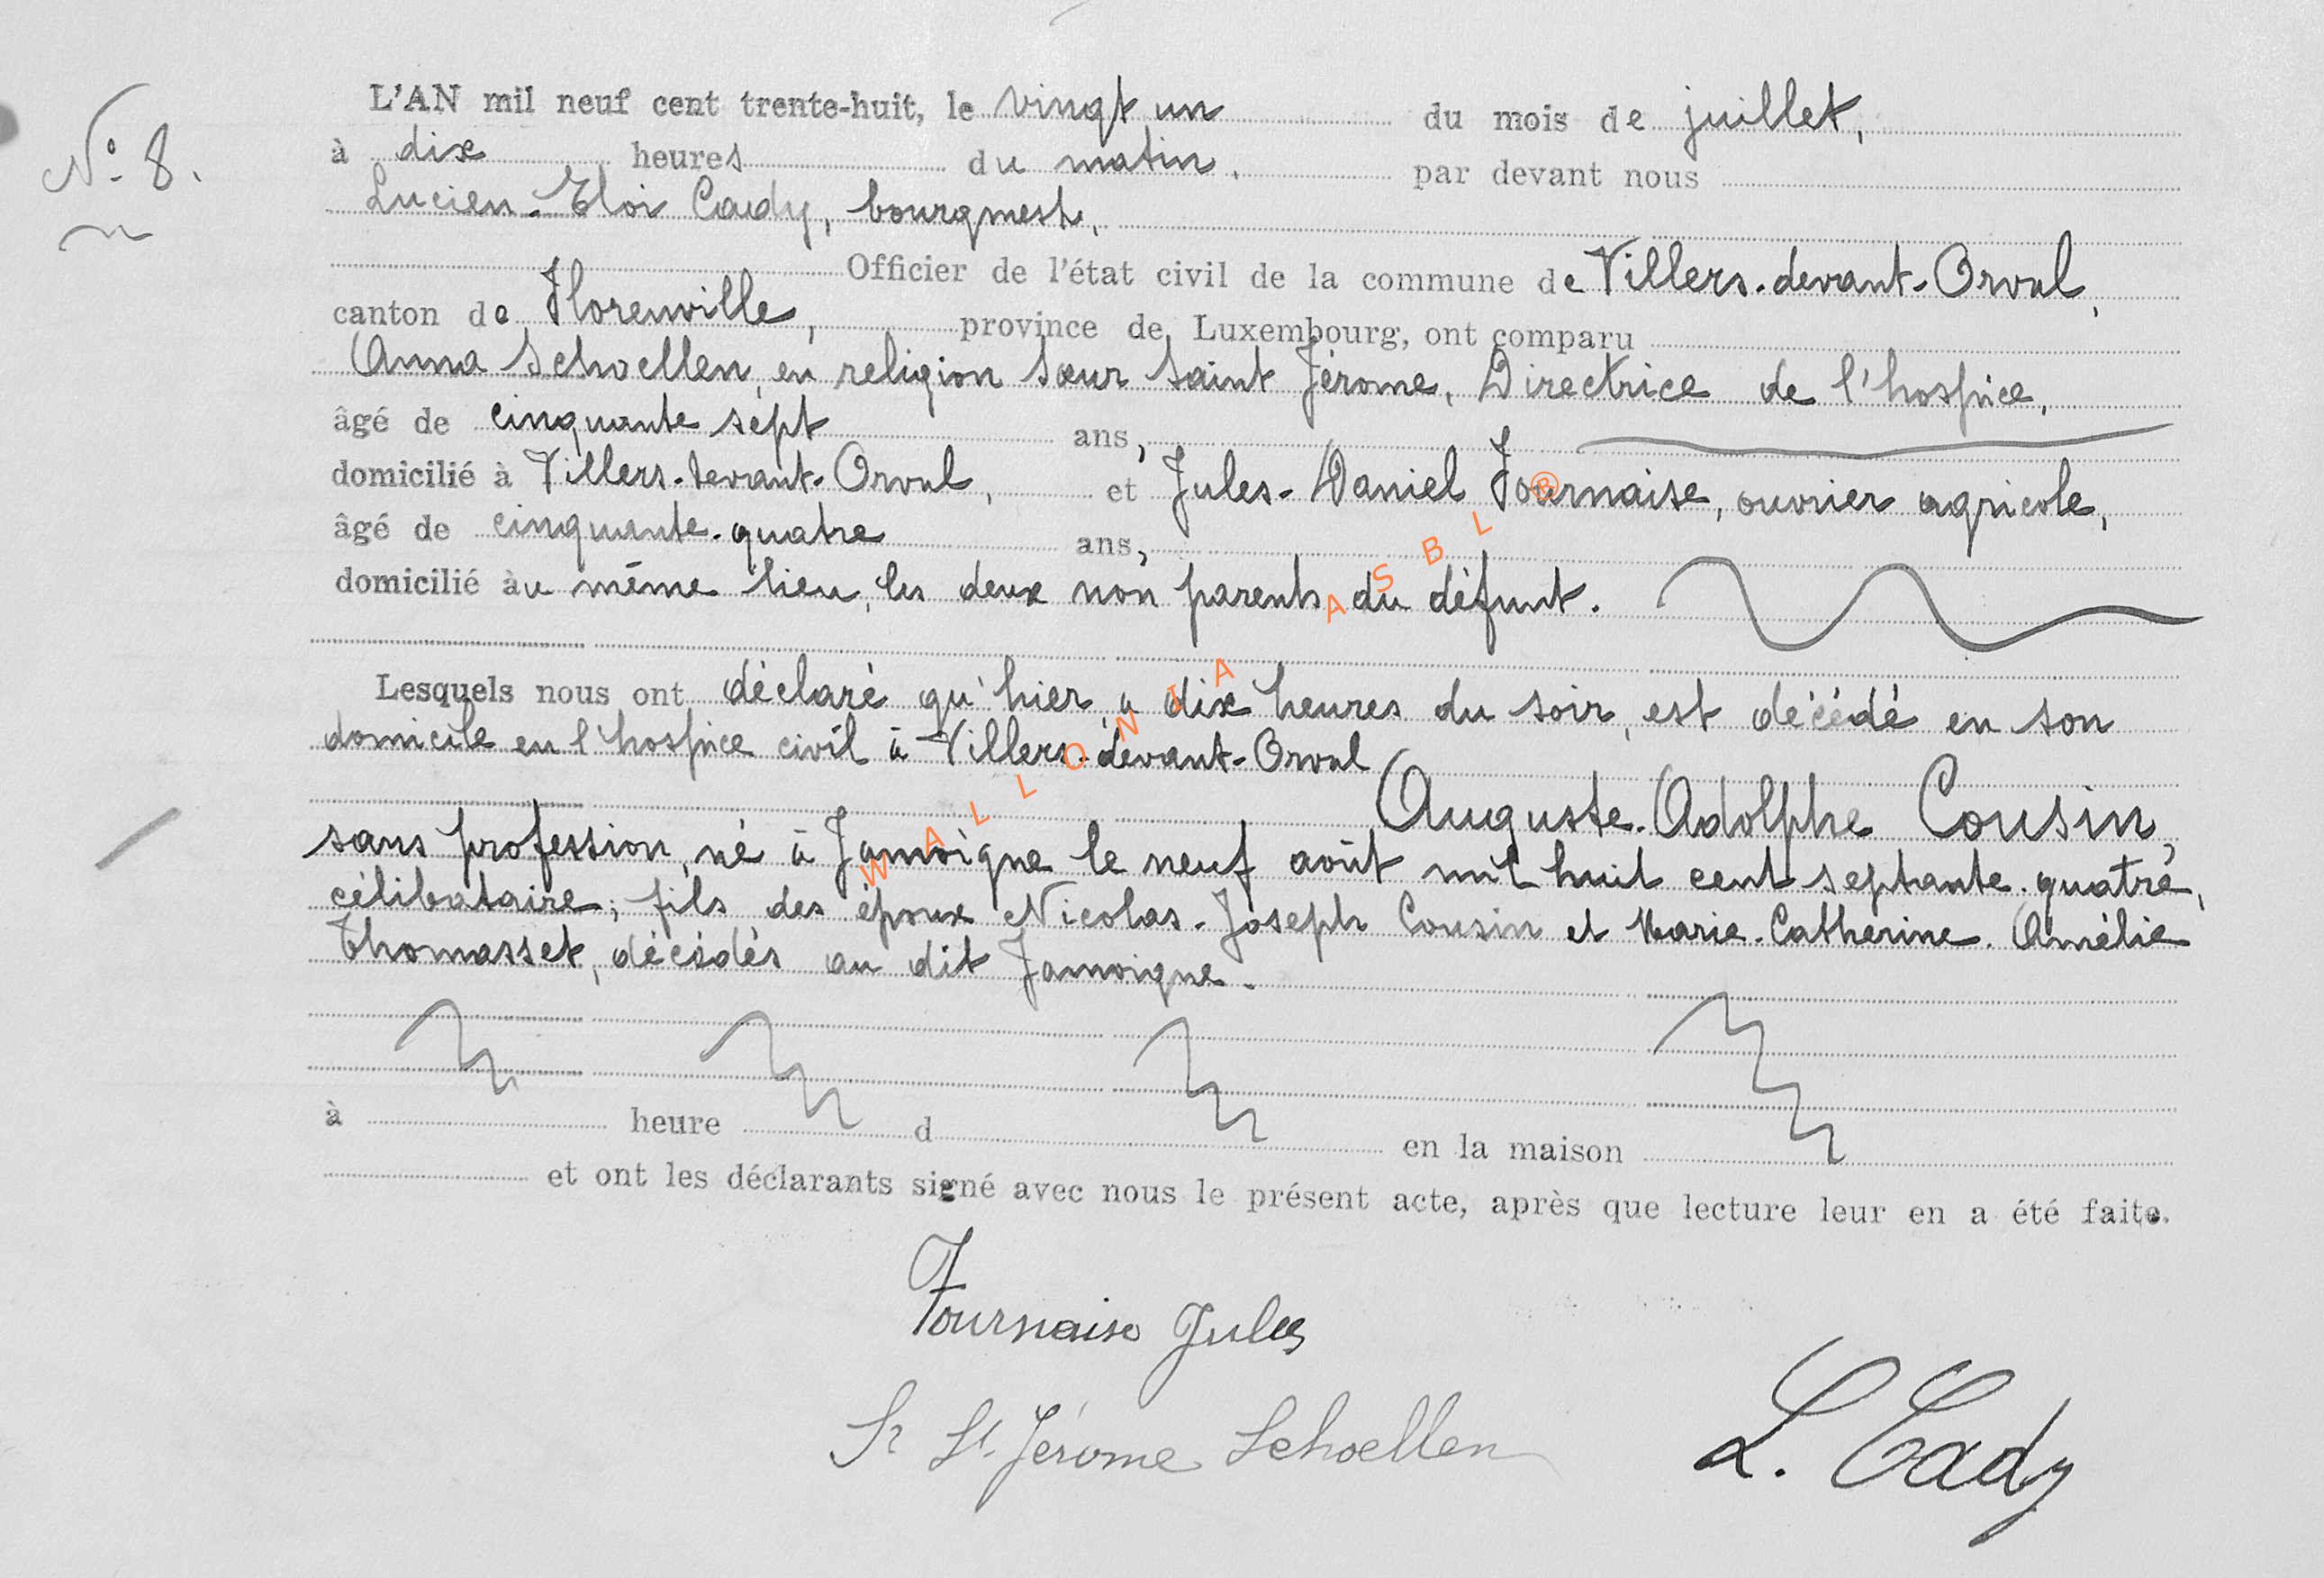 N° 8.
L'AN mil neuf cent trente-huit, le vingt un du mois de juillet,
à dix heures du matin. par devant nous
Lucien-Eloi Cady, bourgmestre,
Officier de l'état civil de la commune de Villers-devant-Orval,
canton de Florenville, province de Luxembourg, ont comparu
Anna Schoellen, en religion sœur Saint Jérome, Directrice de l'hospice,
âgé de cinquante sept ans,
domicilié à Villers-devant-Orval, et Jules-Daniel Fournaise, ouvrier agricole,
âgé de cinquante-quatre ans,
domicilié au même lieu, les deux non parents du défunt.
Lesquels nous ont déclaré qu'hier, à dix heures du soir, est décédé en son
domicile en l'hospice civil à Villers-devant-Orval
Auguste-Adolphe Cousin,
sans profession, né à Jamoigne le neuf août mil huit cent septante-quatre,
célibataire, fils des époux Nicolas-Joseph Cousin et Marie-Catherine-Amélie
Thomasset, décédés au dit Jamoigne.
à heure d en la maison
et ont les déclarants signé avec nous le présent acte, après que lecture leur en a été faite.
Fournaise Jules
Sr St Jérome Schoellen
L. Cady
WALLONIA ASBL ®